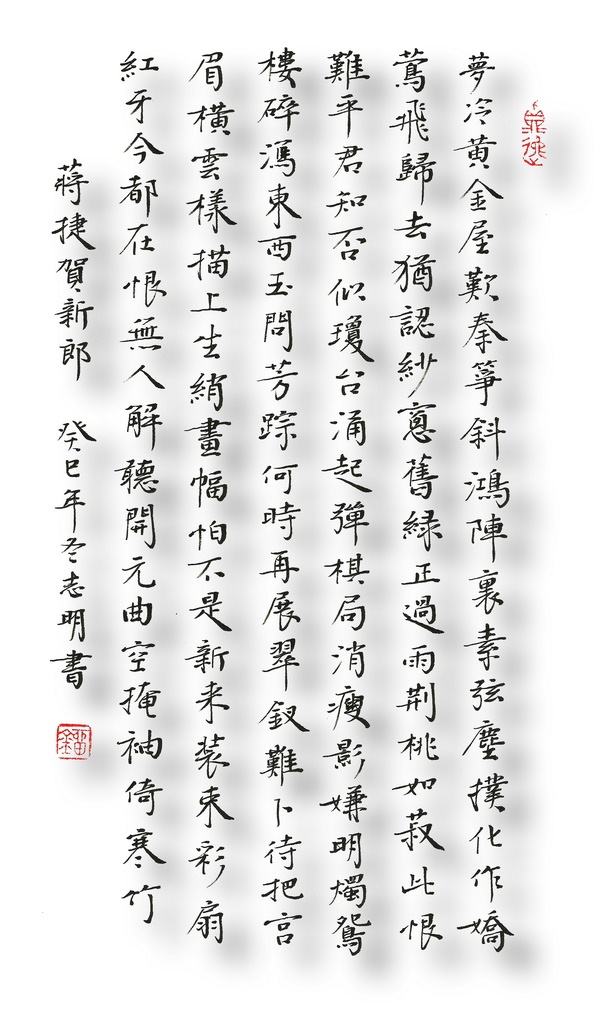 夢冷黄金屋歎秦箏斜鴻陣裏素弦塵撲化作嬌
鶯飛歸去猶認紗窻舊緑正過雨荆桃如菽此恨
難平君知否似瓊台涌起彈棋局消瘦影嫌明燭鴛
樓碎瀉東西玉問芳踪何時再展翠釵難卜待把宫
眉橫雲樣描上生綃畫幅怕不是新来装束彩扇
紅牙今都在恨無人解聽開元曲空掩袖倚寒竹
蔣捷賀新郎 癸巳年冬志明書